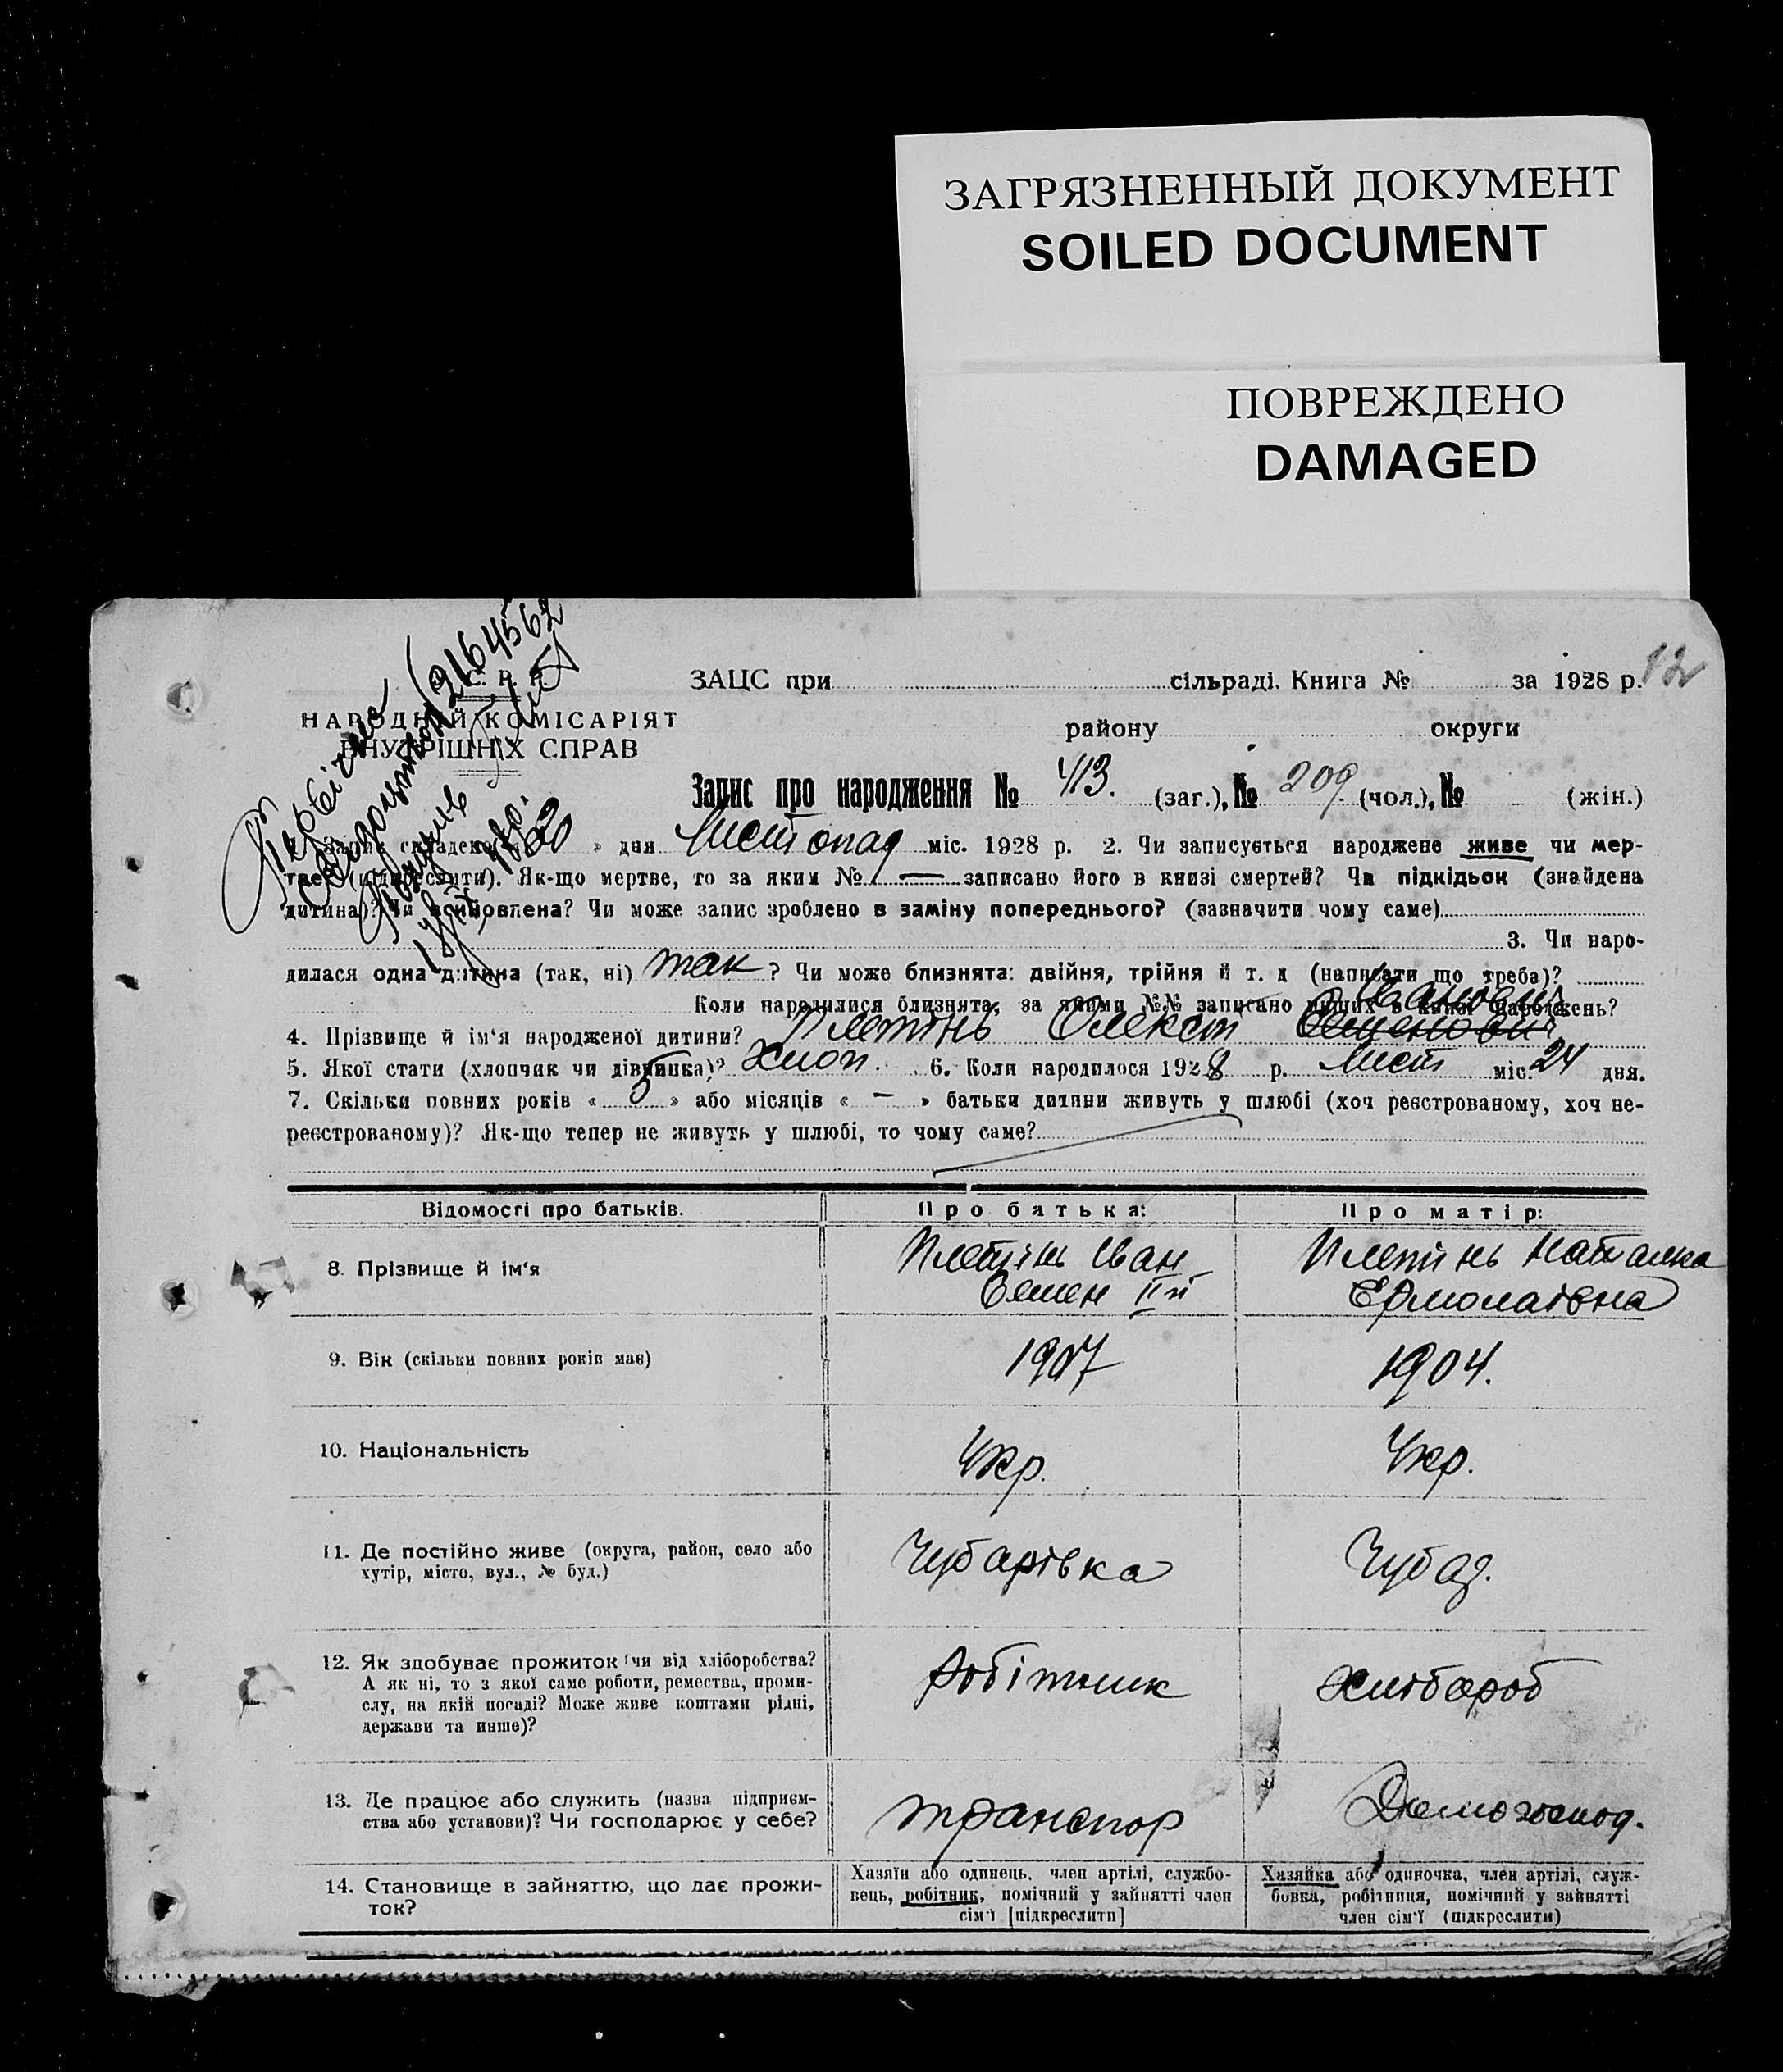 ЗАГРЯЗНЕННЫЙ ДОКУМЕНТ
SOILED DOCUMENT
ПОВРЕЖДЕНО
DAMAGED
12
С. Р. Р.
ЗАЦС при сільраді. Книга № за 1928 р.
НАРОДНІЙ КОМІСАРІЯТ
ВНУТРІШНІХ СПРАВ
району округи
Запис про народження № 413. (заг.), № 209 (чол.), № (жін.)
Запис складено 30 » дня Листопад міс. 1928 р. 2. Чи записується народжене живе чи мер-
тве (підкреслити). Як-що мертве, то за яким № — записано його в книзі смертей? Чи підкідьок (знайдена
дитина)? Чи всиновлена? Чи може запис зроблено в заміну попереднього? (зазначити чому саме)
3. Чи наро-
дилася одна дитина (так, ні) так ? Чи може близнята: двійня, трійня й т. д (написати що треба)?
Коли народилися близнята, за якими №№ записано инших в книзі народжень?
Іванович
4. Прізвище й ім‘я народженої дитини? Плетінь Олексій Семенович
5. Якої стати (хлопчик чи дівчинка)? Хлоп. 6. Коли народилося 1928 р. Лист міс. 24 дня.
7. Скільки повних років « 5 » або місяців « — » батьки дитини живуть у шлюбі (хоч реєстрованому, хоч не-
реєстрованому)? Як-що тепер не живуть у шлюбі, то чому саме?
Відомості про батьків. Про батька: Про матір:
8. Прізвище й ім‘я Плетінь Іван Плетінь Наталка
Семен ІІй Єрмолаївна
9. Вік (скільки повних років має) 1907 1904.
10. Національність Укр. Укр.
11. Де постійно живе (округа, район, село або
хутір, місто, вул., № буд.) Чубарівка Чубар.
12. Як здобуває прожиток (чи від хліборобства?
А як ні, то з якої саме роботи, ремества, проми-
слу, на якій посаді? Може живе коштами рідні,
держави та инше)? Робітник Хлібароб
13. Де працює або служить (назва підприєм-
ства або установи)? Чи господарює у себе? транспор Домогоспод.
14. Становище в зайняттю, що дає прожи-
ток?
Хазяїн або одинець, член артілі, службо-
вець, робітник, помічний у зайнятті член
сім‘ї [підкреслити]
Хазяйка або одиночка, член артілі, служ-
бовка, робітниця, помічний у зайнятті
член сім‘ї (підкреслити)